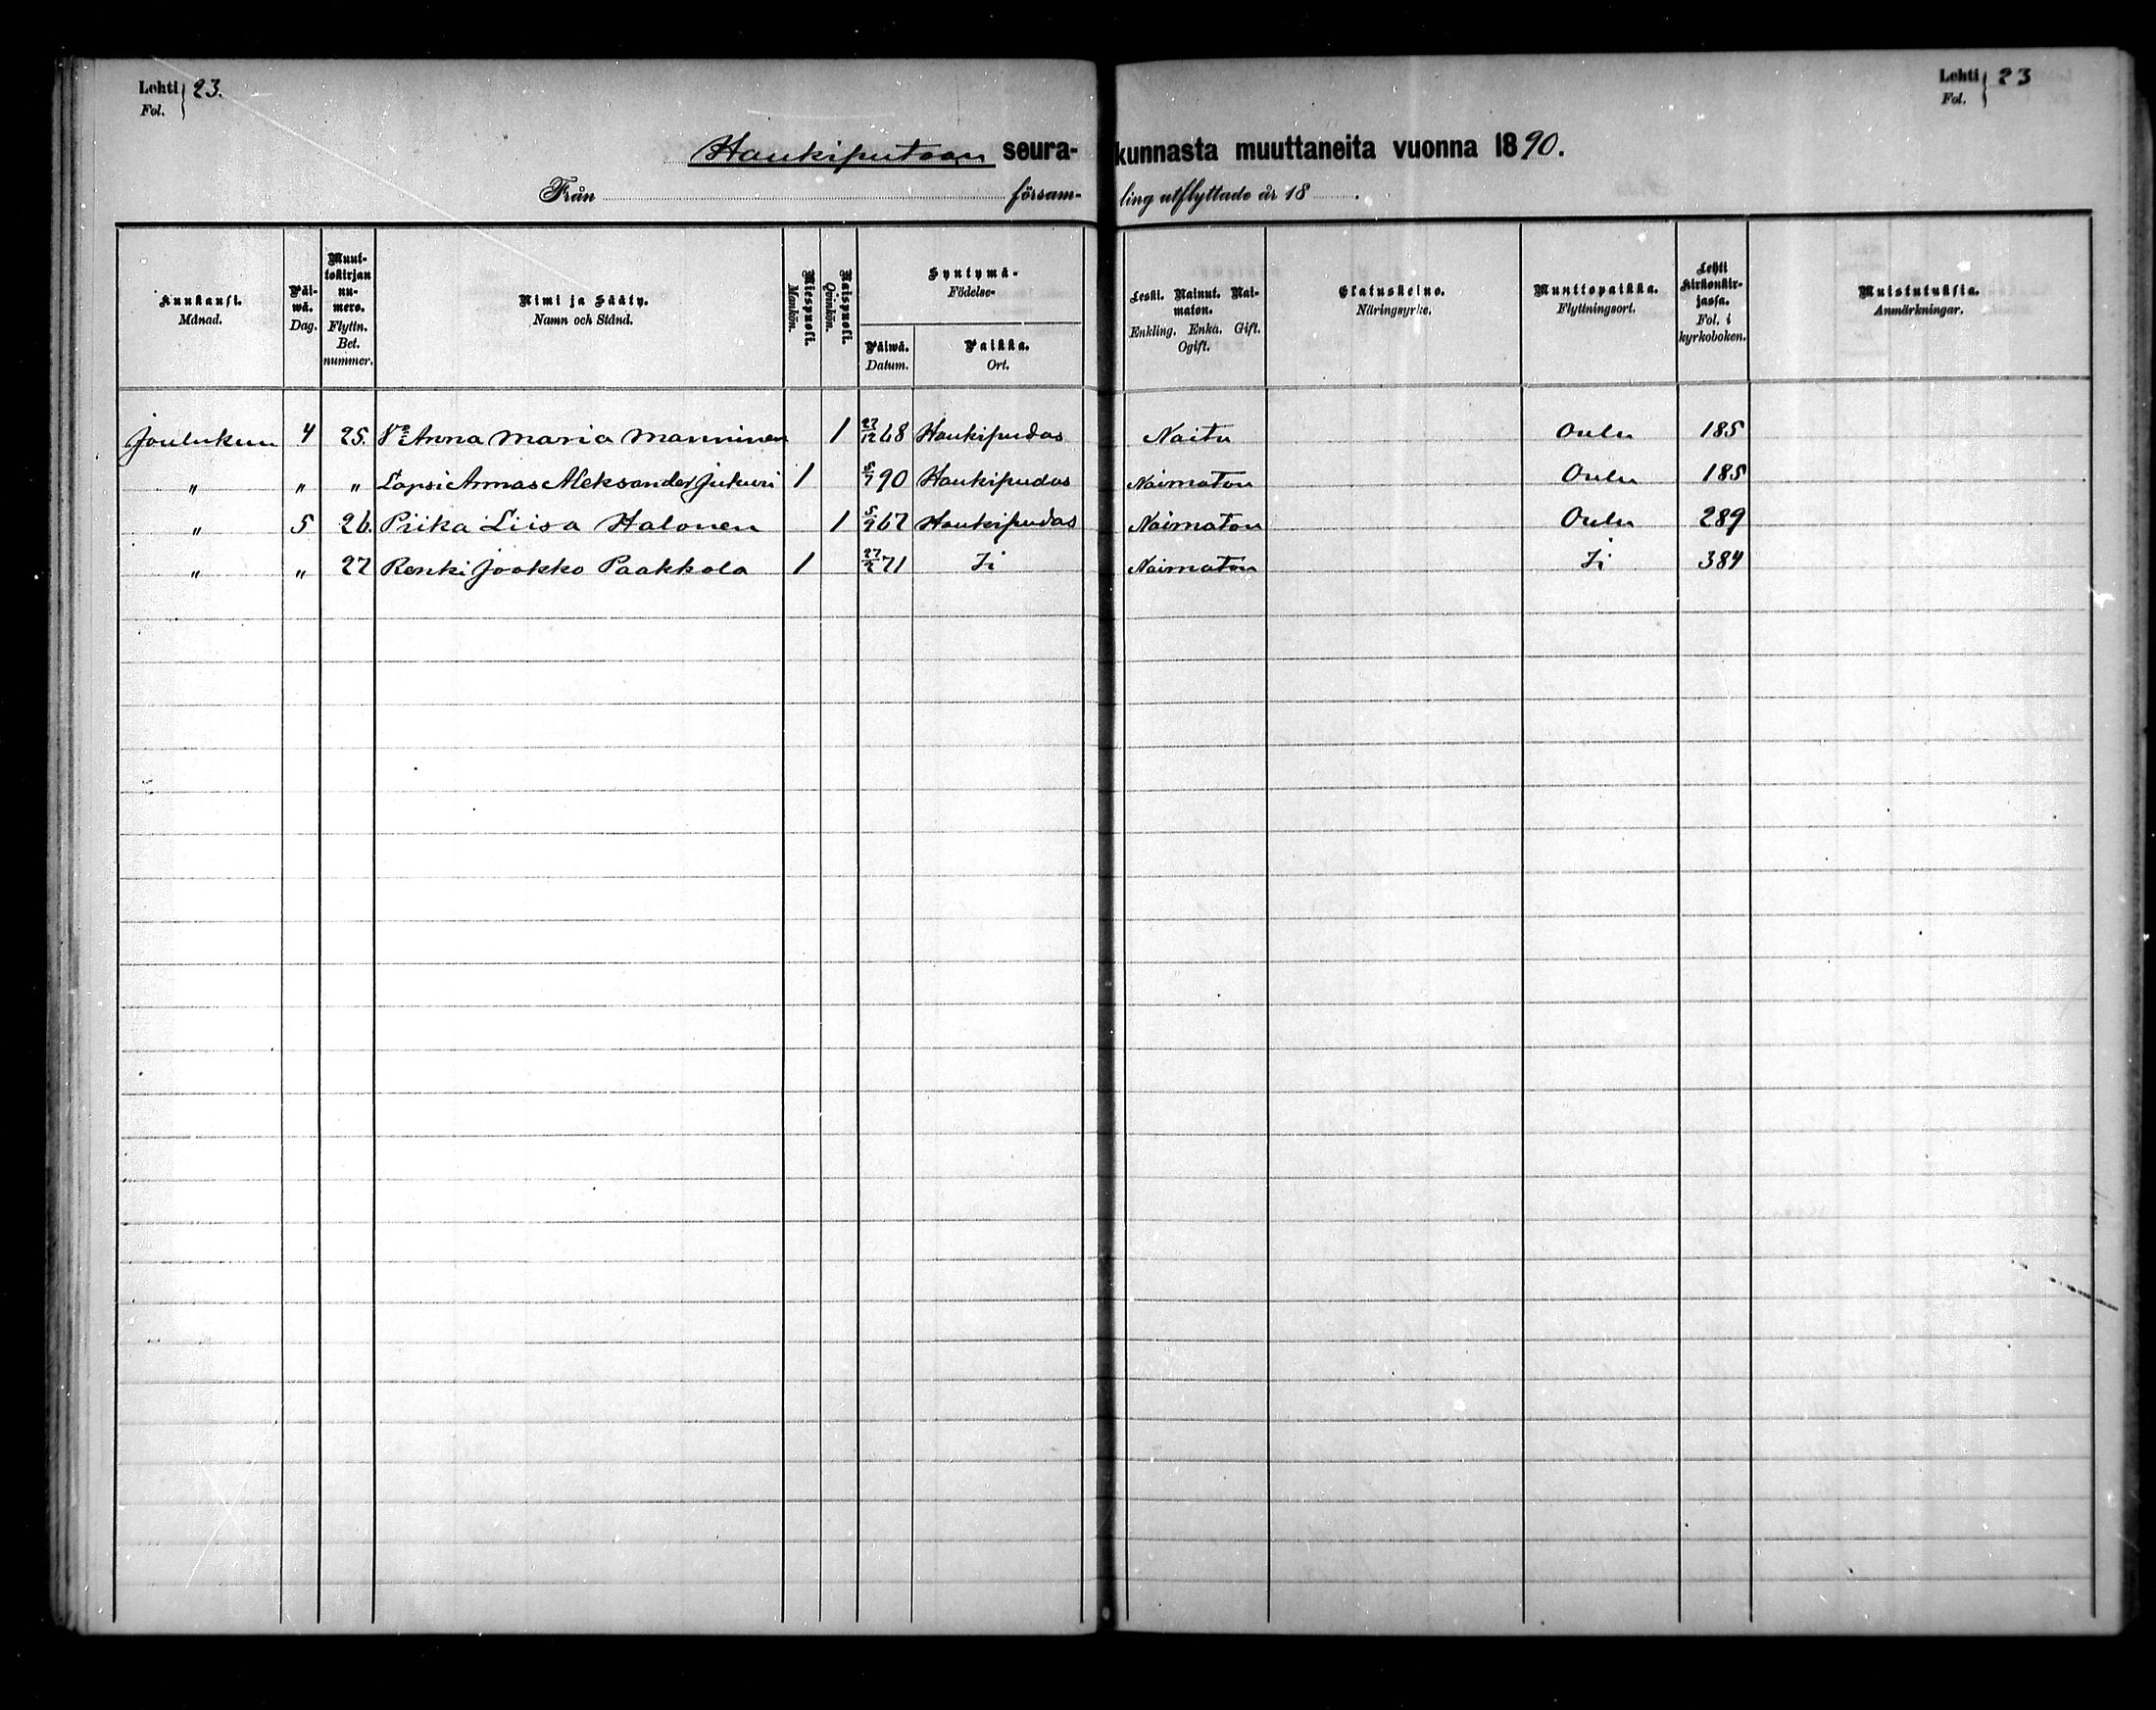 Lehti Fol. } 23.
Lehti Fol. } 23
Haukiputaan seurakunnasta muuttaneita vuonna 1890.
Från församling utflyttade år 18 .
Kuukausi. Månad.
Päiwä. Dag.
Muuttokirjan numero. Flyttn. Bet. nummer.
Nimi ja Sääty. Namn och Stånd.
Miespuoli. Mankön.
Naispuoli. Qvinkön.
Syntymä- Födelse-
Päiwä. Datum.
Paikka. Ort.
Leski. Nainut. Naimaton. Enkling. Enka. Gift. Ogift.
Elatuskeino. Näringsyrke.
Muuttopaikka. Flyttningsort.
Lehti Kirkonkirjassa. Fol. i kyrkoboken.
Muistutuksia. Anmärkningar.
Joulukuu 4 25. Anna Maria Manninen 1 27/12 68 Haukipudas Naitu Oulu 185
" " " Lapsi Armas Aleksander Jukuri 1 90 Haukipudas Naimaton Oulu 185
" 5 26. Piika Liisa Halonen 1 67 Haukipudas Naimaton Oulu 289
" " 27 Renki Jaakko Paakkola 1 71 Ii Naimaton Ii 384